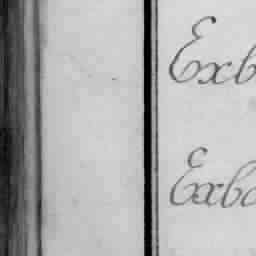 Exb
Exbo